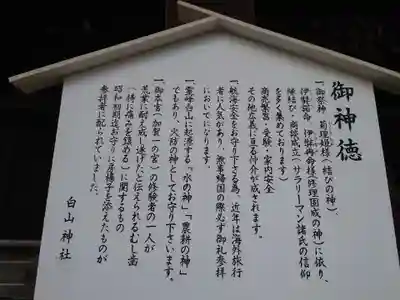 御神徳
一、御祭神 菊理姫様(結びの神)、
伊弉諾命 伊弉冉命様(修理固成の神)に依り、
縁結び・商談成立(サラリーマン諸氏の信仰
を多く集めております)
商売繁盛・受験・家内安全
その他広義に亘る仲介が成されます。
一、航海安全をお守り下さる為、近年は海外旅行
者に人気があり、無事帰国の際必ず御礼参拝
においでになります。
一、霊峰白山に起源する「水の神」「農耕の神」
でもあり、火防の神としてお守り下さいます。
一、御本宮(加賀一の宮)の修験者の一人が
荒業に耐え成し遂げたと伝えられるむし歯
(特に痛みを鎮める)に関するもの
昭和初期迄お守りに房楊子を添えたものが
参拝者に配られていました。
白山神社